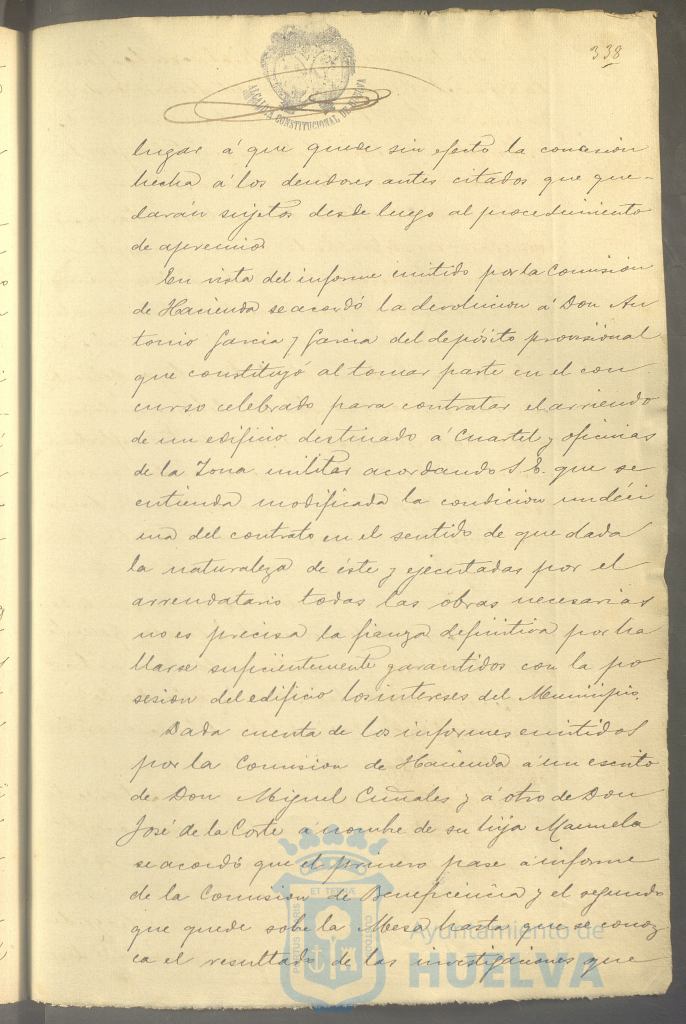 338
ALCALDIA CONSTITUCIONAL DE HUELVA
lugar á que quede sin efecto la concesion
hecha á los deudores antes citados que que-
darán sujetos desde luego al procedimiento
de apremio.
En vista del informe emitido por la Comision
de Hacienda se acordó la devolucion á Don An
tonio Garcia y Garcia del depósito provisional
que constituyó al tomar parte en el con
curso celebrado para contratar el arriendo
de un edificio destinado á Cuartel y oficinas
de la Zona militar acordando S. E. que se
entienda modificada la condicion undéci
ma del contrato en el sentido de que dada
la naturaleza de éste y ejecutadas por el
arrendatario todas las obras necesarias
no es precisa la fianza definitiva por ha
llarse suficientemente garantidos con la po
sesion del edificio los intereses del Municipio.
Dada cuenta de los informes emitidos
por la Comision de Hacienda á un escrito
de Don Miguel y á otro de Don
José de la Corte á nombre de su hija Manuela
se acordó que el primero pase á informe
de la Comision de Beneficencia y el segundo
que quede sobre la Mesa hasta que se conoz
ca el resultado de las investigaciones que
PORTUS MARIS ET TERRÆ CUSTODIA
Ayuntamiento de
HUELVA